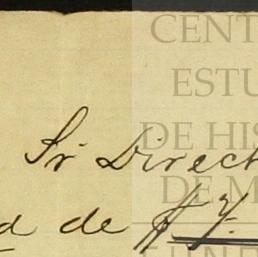 CENT
ESTU
DE HIS
DE M
Sr Direct
d de